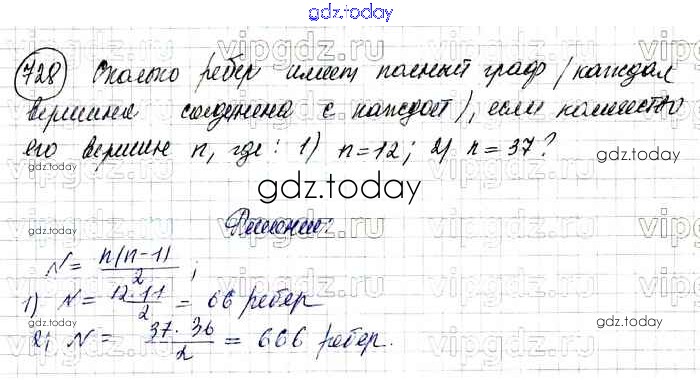 gdz.today
728 Сколько ребер имеет полный граф (каждая
вершина соединена с каждой), если количество
его вершин n, где: 1) n=12; 2) n=37?
gdz.today
Решение:
N = n(n-1)/2;
1) N = 12·11/2 = 66 ребер
2) N = 37·36/2 = 666 ребер.
gdz.today
gdz.today
gdz.today
gdz.today
vipgdz.ru
vipgdz.ru
vipgdz.ru
vipgdz.ru